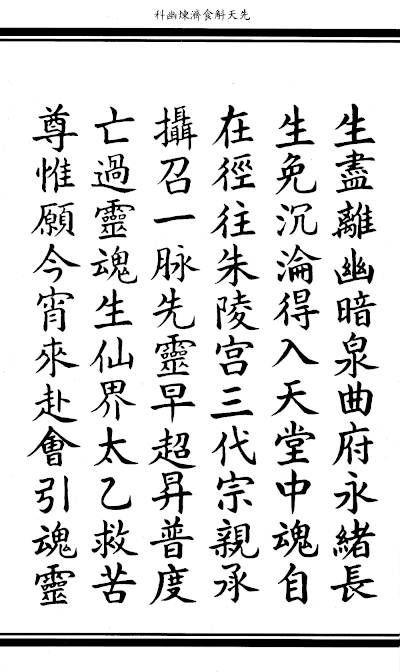 科幽煉濟食斛天先
生盡離幽暗泉曲府永緒長
生免沉淪得入天堂中魂自
在徑往朱陵宮三代宗親承
攝召一脉先靈早超昇普度
亡過靈魂生仙界太乙救苦
尊惟願今宵來赴會引魂靈